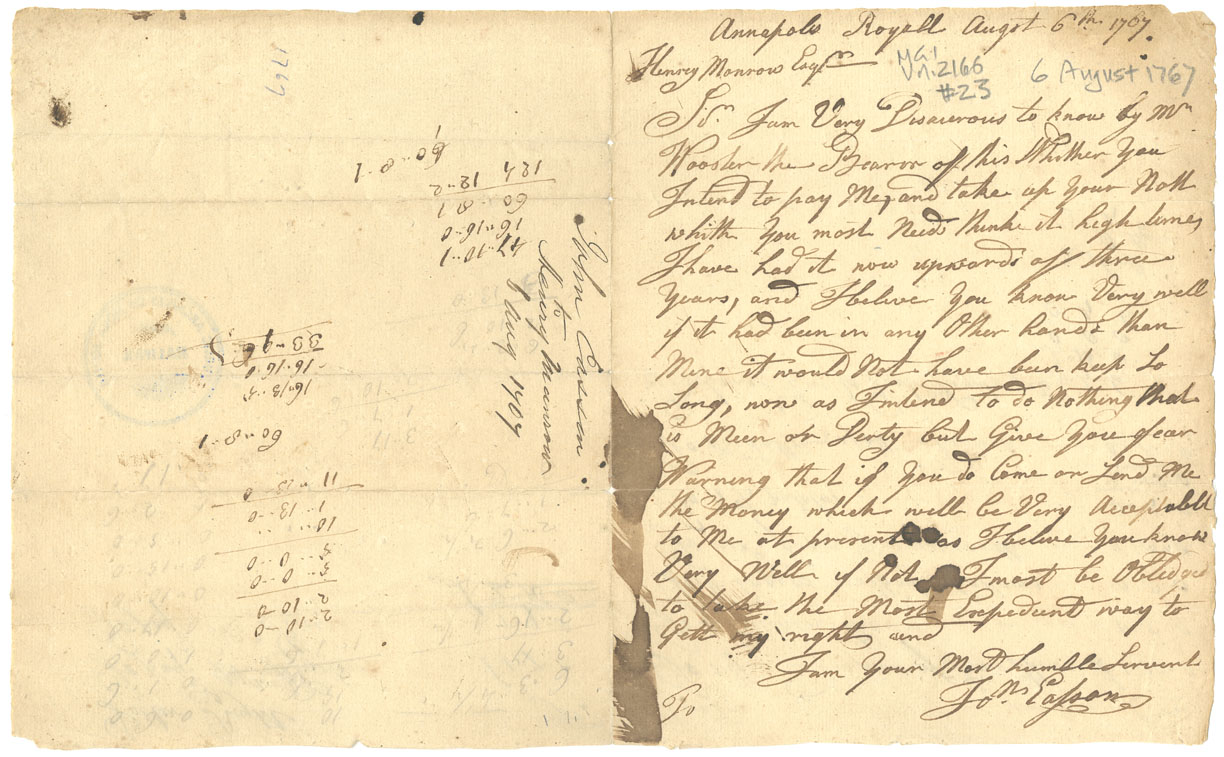 Annapolis Royall Augst 6th 1767.
Henry Monrow Esqr
MG1
V.n.2166
#23
6 August 1767
Sr. I am Very Disacerous to know by Mr
Wooster the Bearor of this Whither You
Intend to pay Me, and take up Your Nott
whith You most Needs think it high time,
I have had it now upwards off three
Years, and I beleive You know Very well
if it had been in any Other hands than
Mine it would Not have been keep So
Long, now as I intend to do Nothing that
is Meen or Derty but Give You fear
Warning that if You do Come or Send Me
the Money which will be Very Acceptabll
to Me at present as I beleve You know
Very Well if Not I most be Obledged
to take the Most Expedient way to
Gett my right and
I am Your Most humble Servent
Jon Easson
To
John Easson
to
Henry Munrow
1767
60..8..1
12 1/2
12..2
60..8..1
16..16..0
47..10..1
33..9
16..16..0
60..8..1
11..13..0
1..13..0
10..
3..0..0
2..10..0
2..10..0